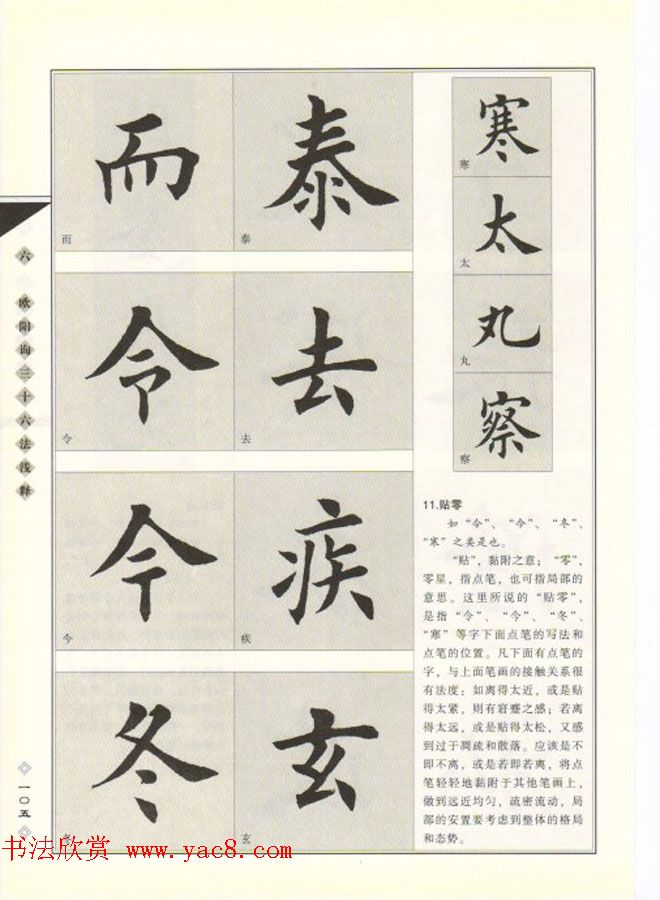 而
泰
而
泰
令
去
令
去
今
疾
今
疾
冬
玄
冬
玄
寒
寒
太
太
丸
丸
察
察
11.贴零
如“令”、“今”、“冬”、
“寒”之类是也。
“贴”，黏附之意；“零”，
零星，指点笔，也可指局部的
意思。这里所说的“贴零”，
是指“令”、“今”、“冬”、
“寒”等字下面点笔的写法和
点笔的位置。凡下面有点笔的
字，与上面笔画的接触关系很
有法度：如离得太近，或是贴
得太紧，则有窘蹙之感；若离
得太远，或是贴得太松，又感
到过于凋疏和散落。应该是不
即不离，或是若即若离，将点
笔轻轻地黏附于其他笔画上，
做到远近均匀，疏密流动，局
部的安置要考虑到整体的格局
和态势。
六 欧阳询三十六法浅释
一〇五
书法欣赏 www.yac8.com